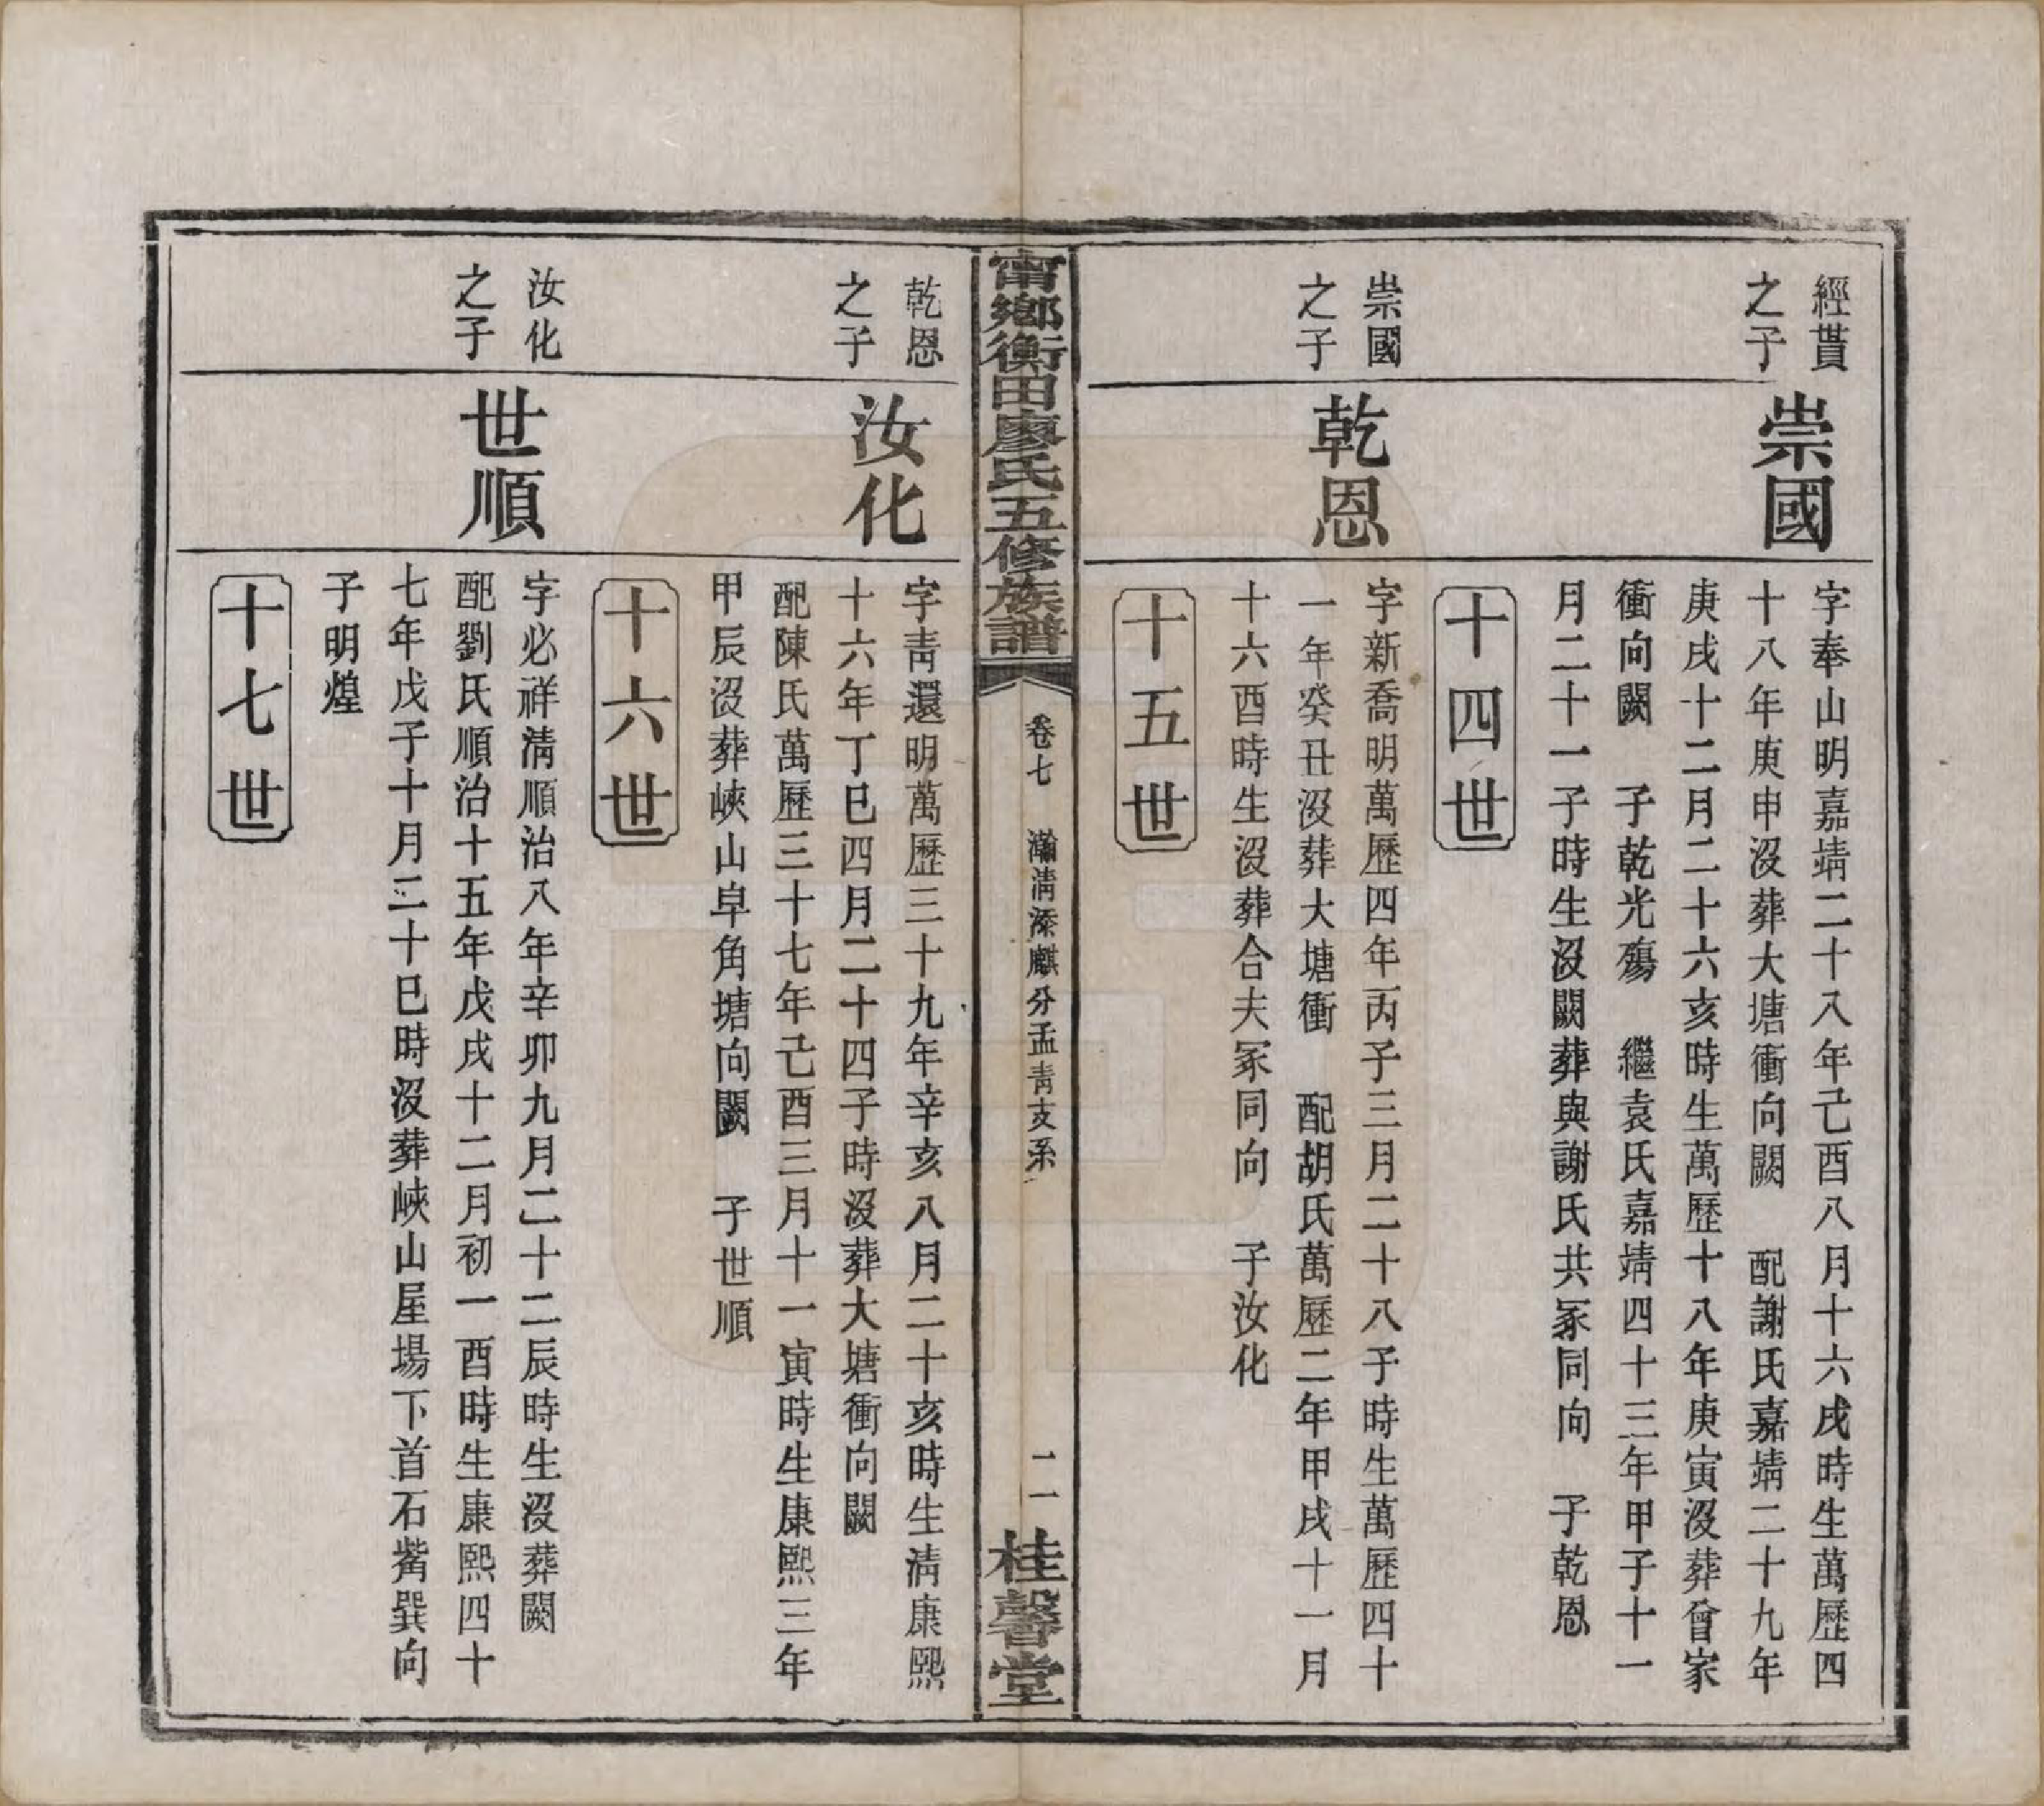 經貰
之子
崇國
字奉山明嘉靖二十八年己酉八月十六戌時生萬歷四
十八年庚申沒葬大塘衝向闕　配謝氏嘉靖二十九年
庚戌十二月二十六亥時生萬歷十八年庚寅沒葬曾家
衝向闕　子乾光殤　繼袁氏嘉靖四十三年甲子十一
月二十一子時生沒闕葬與謝氏共冢同向　子乾恩
十四世
崇國
之子
乾恩
字新喬明萬歷四年丙子三月二十八子時生萬歷四十
一年癸丑沒葬大塘衝　配胡氏萬歷二年甲戌十一月
十六酉時生沒葬合夫冢同向　子汝化
十五世
甯鄉衡田廖氏五修族譜
卷七　瀚淸漆麒分孟靑支系
二一
桂馨堂
乾恩
之子
汝化
字靑還明萬歷三十九年辛亥八月二十亥時生淸康熙
十六年丁巳四月二十四子時沒葬大塘衝向闕
配陳氏萬歷三十七年己酉三月十一寅時生康熙三年
甲辰沒葬峽山皁角塘向闕　子世順
十六世
汝化
之子
世順
字必祥淸順治八年辛卯九月二十二辰時生沒葬闕
配劉氏順治十五年戊戌十二月初一酉時生康熙四十
七年戊子十月二十巳時沒葬峽山屋場下首石觜巽向
子明煌
十七世